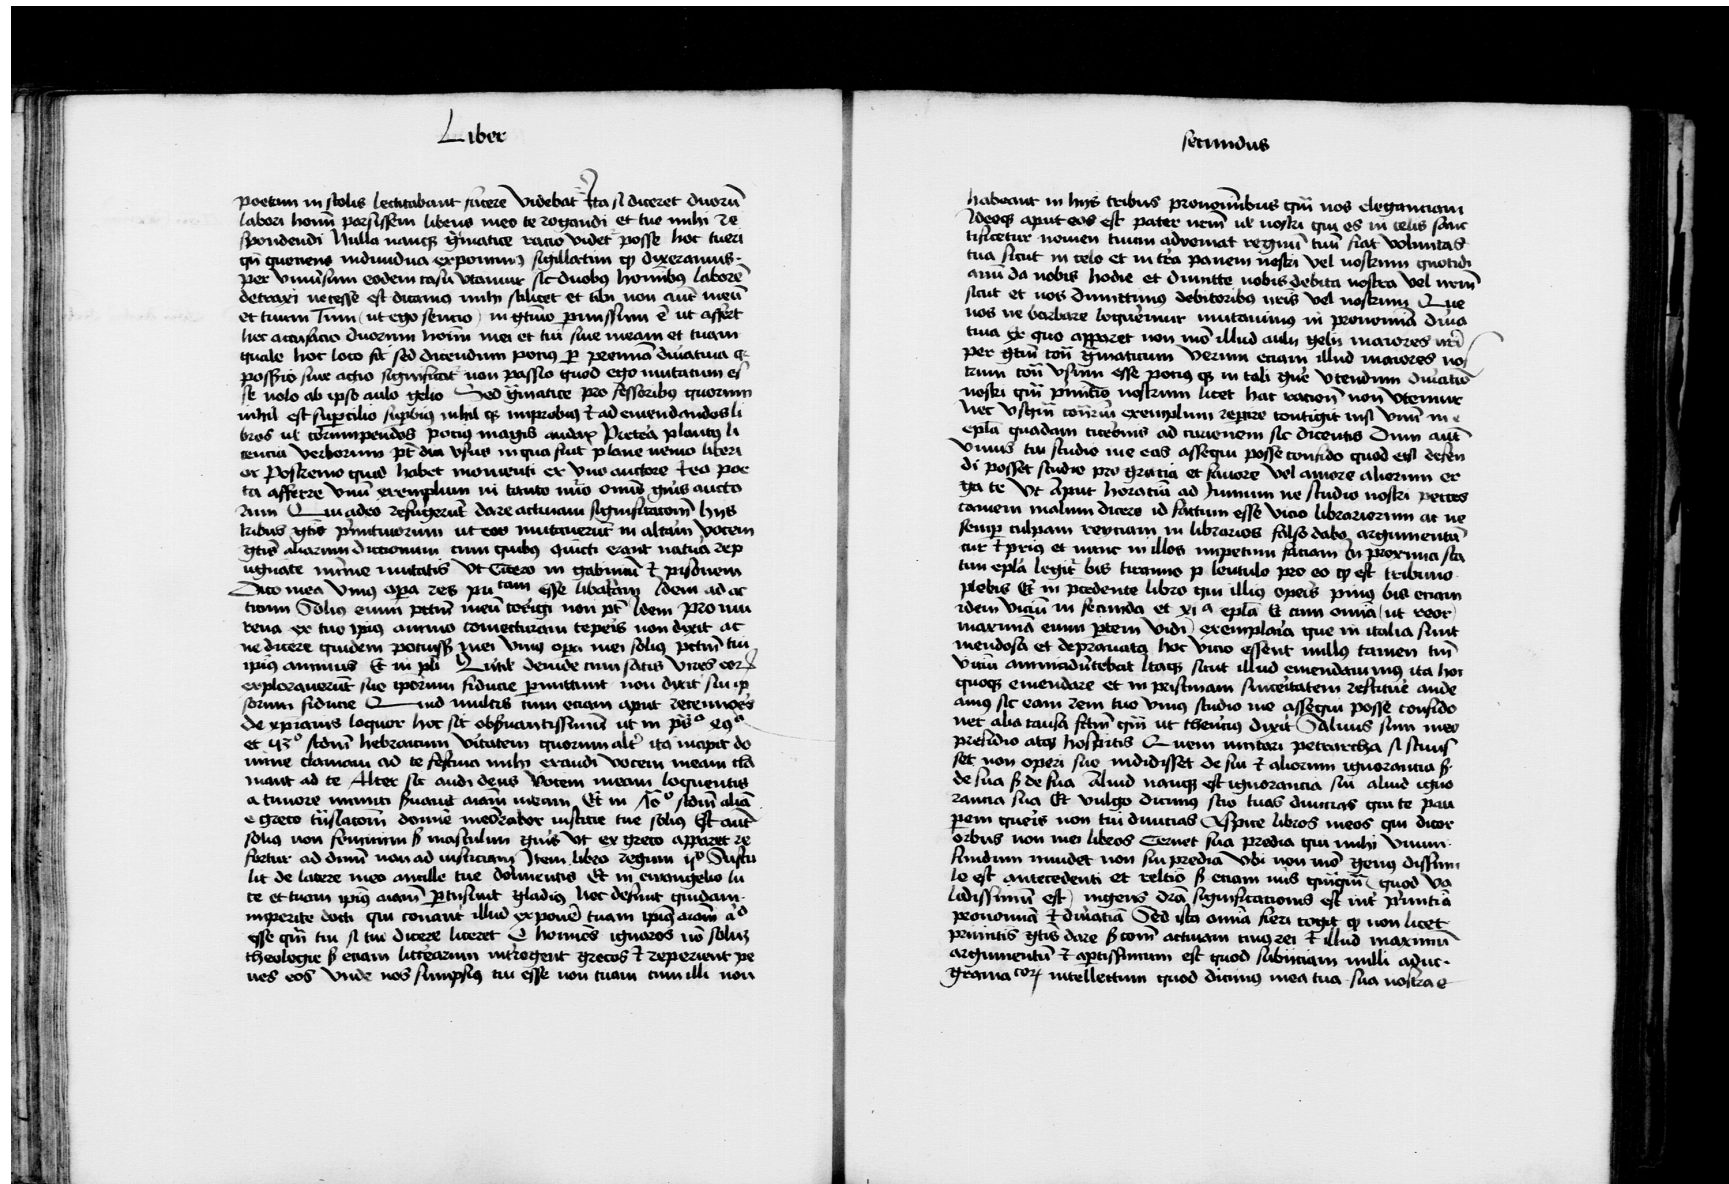 Liber
poetam in scolis lectitabant facere videbat᷑ Ita si diceret duorū
labori hoīm parsissem libens meo te rogandi et tue mihi re
spondendi Nulla nanqꝫ g̃matice racio videt᷑ posse hoc tueri
qñ queriens individua exponimꝰ sigillatim qꝫ dixeramus
per vniversum eodem casu vtamur sic duobus hoībus laborē
detraxi necesse est dicamus mihi scilicet et tibi non aut meū
et tuum Tum (ut ego sencio) in gtīuo ꝑmissum ē ut affert
hec accusacio duorum hoīm mei et tui siue meam et tuam
quale hoc loco sit sed dicendum potius ꝑ pronoīa dīuatiua
possessio siue actio significat᷑ non passio quod ego mutatum es
se nolo ab ipso aulo gelio Sed g̃matice professoribus quorum
nihil est supercilio supbius nihil qꝫ improbius et ad emendandos li
bros uel corrumpendos potius magis audax Preterea plautus li
cencia verborum
or Postremo quid habet momenti ex vno auctore et ea poe
ta afferre vnū exemplum in tanto nūo omīs gn̄is aucto
rum Qui adeo refugerūt dare actiuam significacōem hijs
tribus gtīs pꝛimitiuorum ut eos mutauerūt in aliam vocem
gtīs aliarum dictionum cum quibus iūcti erant natura rep
ugnate mīme mutatis Vt Cicero in gabiniū et pisonem
Dico mea vnius opera res pu cam esse libatam Idem ad at
ticum Solius enim pctm̄ meū corrigi non pt̄ Idem pro mu
rena ex tuo ipius animo coniecturam ceperis non dixit ac
ne dicere quidem potuisset mei vnius opa mei solius pctm̄ tui
ipius animus
explorauerūt sue ipsorum fiducie ꝑmittunt non dixit sui ip
sorum fiducie Quid multis cum etiam aput recentiores
de xp̄ianis loquor hoc sit obseruantissimum ut in
et secdm̄ hebraicum veritatem quorum alter ita incipit do
mine clamaui ad te festina mihi exaudi vocem meam cla
mant ad te Alter sic audi deus vocem meam loquentis
a timore inimici ẜuauit aīam meam Et in secdm̄ aliā
e greco tn̄slacōem domine memorabor iusticie tue solius Est aut̄
solius non feminini ẜ masculini gn̄is Vt ex greco apparet re
fertur ad dnm̄ non ad iusticiam Item libro regum Sustu
lit de latere meo ancille tue dormientis Et in ewangelio lu
ce et tuam ipius aīam ꝑtransiuit gladius hoc desinit quidam
imperite docti qui conant᷑ illud exponē tuam ipius aīam
esse qm̄ tui si tui dicere liceret O homines ignaros nō solū
theologie ẜ etiam litterarum int᷑rogent grecos et reperient pe
nes eos Vnde nos sumpsimus tui esse non tuam cum illi non
secundus
habeant in hijs tribus pronominibus qm̄ nos eleganciam
Ideoqꝫ aput eos est pater nr̄m uel nostri qui es in celis sanc
tificetur nomen tuum adveniat regnū tuū fiat voluntas
tua sicut in celo et in terra panem nostri vel nostrum quotidi
anū da nobis hodie et dimitte nobis debita nostra vel nr̄m
sicut et nos dimittimus debitoribus nr̄is vel nostrum Que
nos ne barbare loqueremur mutauimus in pronomīa dīua
tiua Ex quo apparet non mō illud auli gelij maiores nr̄i
per gtm̄ g̃maticum Verum etiam illud maiores no
trum usum esse potius qꝫ in tali
nostri qm̄
nec vsqm̄ exemplum reperire contigit nisi vnū in
epl̄a quadam ciceronis ad curionem sic dicentis Dum aut̄
vnius tui studio me eas assequi posse confido quod est defen
di posset studio pro gracia et fauore vel amore aliorum er
ga te Vt aput horatiū ad Iunium ne studio nostri pecces
tamen malum dicere id factum esse vicio librariorum ac ne
semper culpam reijciam in librarios falso dabo argumentū
cur et pꝛius et nunc in illos impetum faciam In proxima sta
tim epl̄a legit᷑ bis tiranno p lentulo pro eo qꝫ est tribuno
plebis Et in p̄cedente libro qui illius operis primus bis etiam
idem viciū in secunda et xi ᵃ epl̄a Et cum omīa (ut reor)
maximā enim ꝑtem vidi) exemplaria que in italia sunt
mendosa et deprauata hoc vicio essent nullus tamen tm̄
viciū animaduertebat Itaqꝫ sicut illud emendauimus ita hoc
quoqꝫ emendare et in pristinam sinceritatem restituere aude
amus sic eam rem tuo vnius studio me assequi posse confido
nec alia causa factū qm̄ ut therencius dixit Saluus sum meo
presidio atqꝫ hospitis Quem imitari petrarcha si sciuis
set non operi suo indidisset de sui et aliorum ignorancia ẜ
de sua ẜ de sua Aliud nanqꝫ est ignorancia sui aliud igno
rancia sua Et vulgo dicimus scio tuas diuicias qui te pau
perem queris non tui diuicias Aspice libros meos qui dictor
orbus non mei libros Cernet sua predia qui mihi vinum
fundum inuidet non sui predia Vbi non mō genus dissimi
le est antecedenti et relatio ẜ etiam nūs quāquā (quod va
lidissimū est) ingens dr̄ā significationis est int᷑ pꝛimitiā
pronomīa et dīuatiā Sed ista omīa fieri cogit qꝫ non licet
primitiuis gtīs dare ẜ com̄ actiuam cuius rei et illud maximū
argumentū et aptissimum est quod subiiciam nulli adhuc
grama corꝝ intellectum quod dicimus mea tua sua nostra e